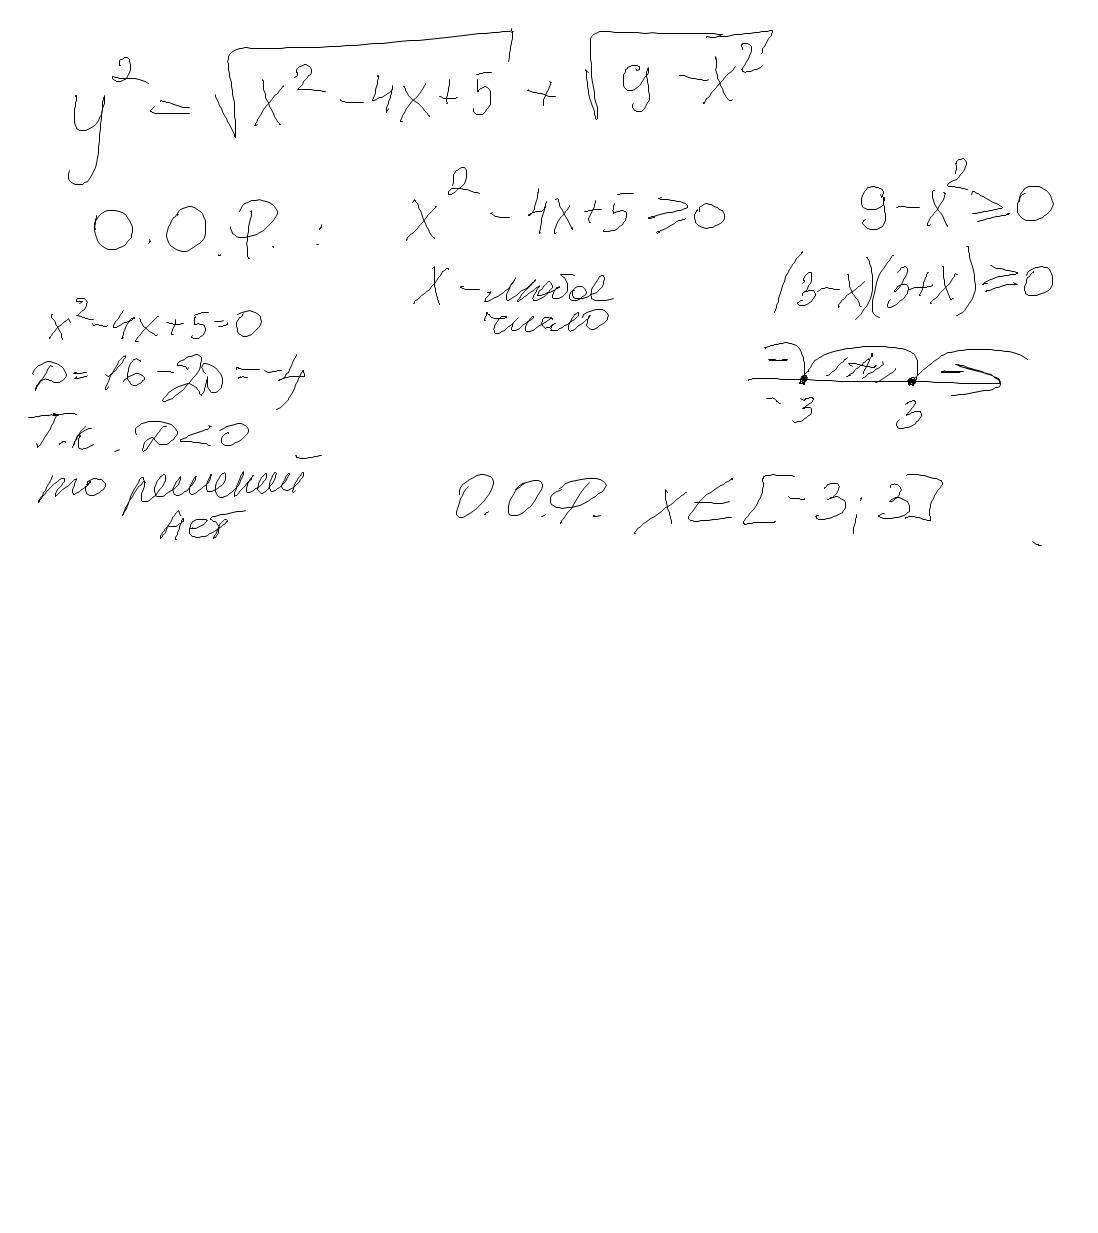 y² = √(x² - 4x + 5) + √(9 - x²)
О.О.Р. : x² - 4x + 5 ≥ 0 9 - x² ≥ 0
x - любое число (3-x)(3+x) ≥ 0
x² - 4x + 5 = 0
D = 16 - 20 = -4
- + -
-3 3
Т.к. D < 0
то решений
нет
О.О.Р. x ∈ [-3; 3]